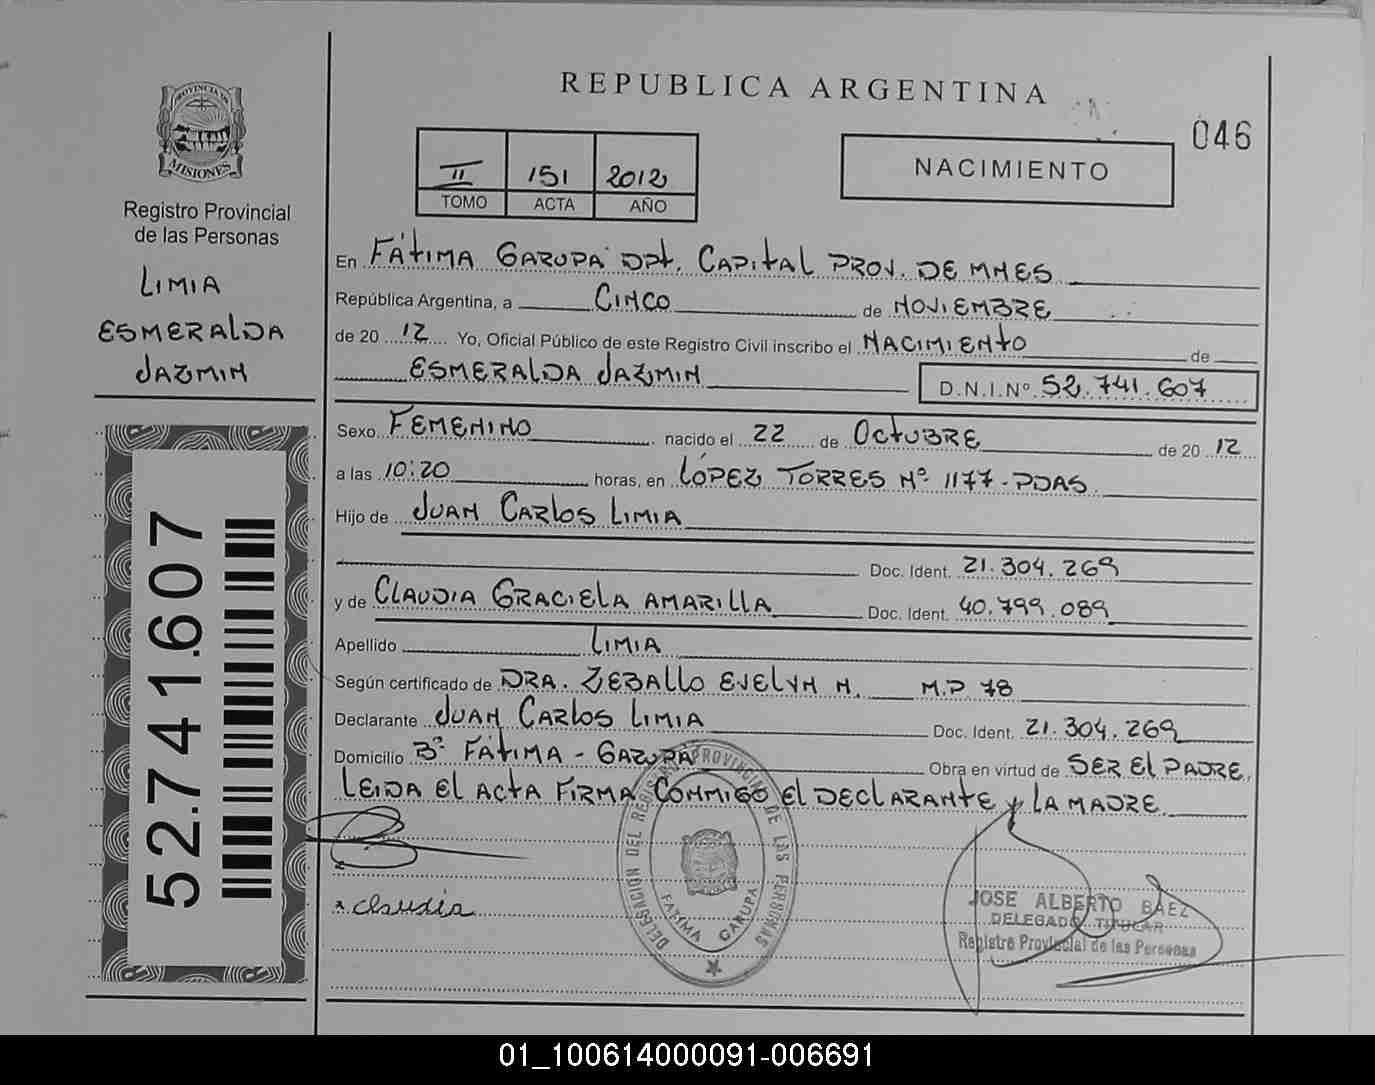 REPUBLICA ARGENTINA
046
PROVINCIA DE
MISIONES
Registro Provincial
de las Personas
LIMIA
ESMERALDA
JAZMIN
52.741.607
II 151 2012
TOMO ACTA AÑO
NACIMIENTO
En FÁTIMA GARUPA DPt. CAPITAL PROV. DE MNES
República Argentina, a CINCO de NOVIEMBRE
de 20 12 Yo, Oficial Público de este Registro Civil inscribo el NACIMIENTO de
ESMERALDA JAZMIN D.N.I.Nº 52.741.607
Sexo FEMENINO nacido el 22 de OCTUBRE de 20 12
a las 10:20 horas, en LÓPEZ TORRES Nº 1177-PDAS.
Hijo de JUAN CARLOS LIMIA
Doc. Ident. 21.304.269
y de CLAUDIA GRACIELA AMARILLA Doc. Ident. 40.799.089
Apellido LIMIA
Según certificado de DRA. ZEBALLO EVELYN N. M.P 78
Declarante JUAN CARLOS LIMIA Doc. Ident. 21.304.269
Domicilio Bº FÁTIMA - GARUPÁ Obra en virtud de SER EL PADRE.
LEIDA EL ACTA FIRMA CONMIGO EL DECLARANTE y LA MADRE.
x claudia
DELEGACION DEL REGISTRO PROVINCIAL DE LAS PERSONAS
FATIMA GARUPA
JOSE ALBERTO BAEZ
DELEGADO TITULAR
Registro Provincial de las Personas
01_100614000091-006691